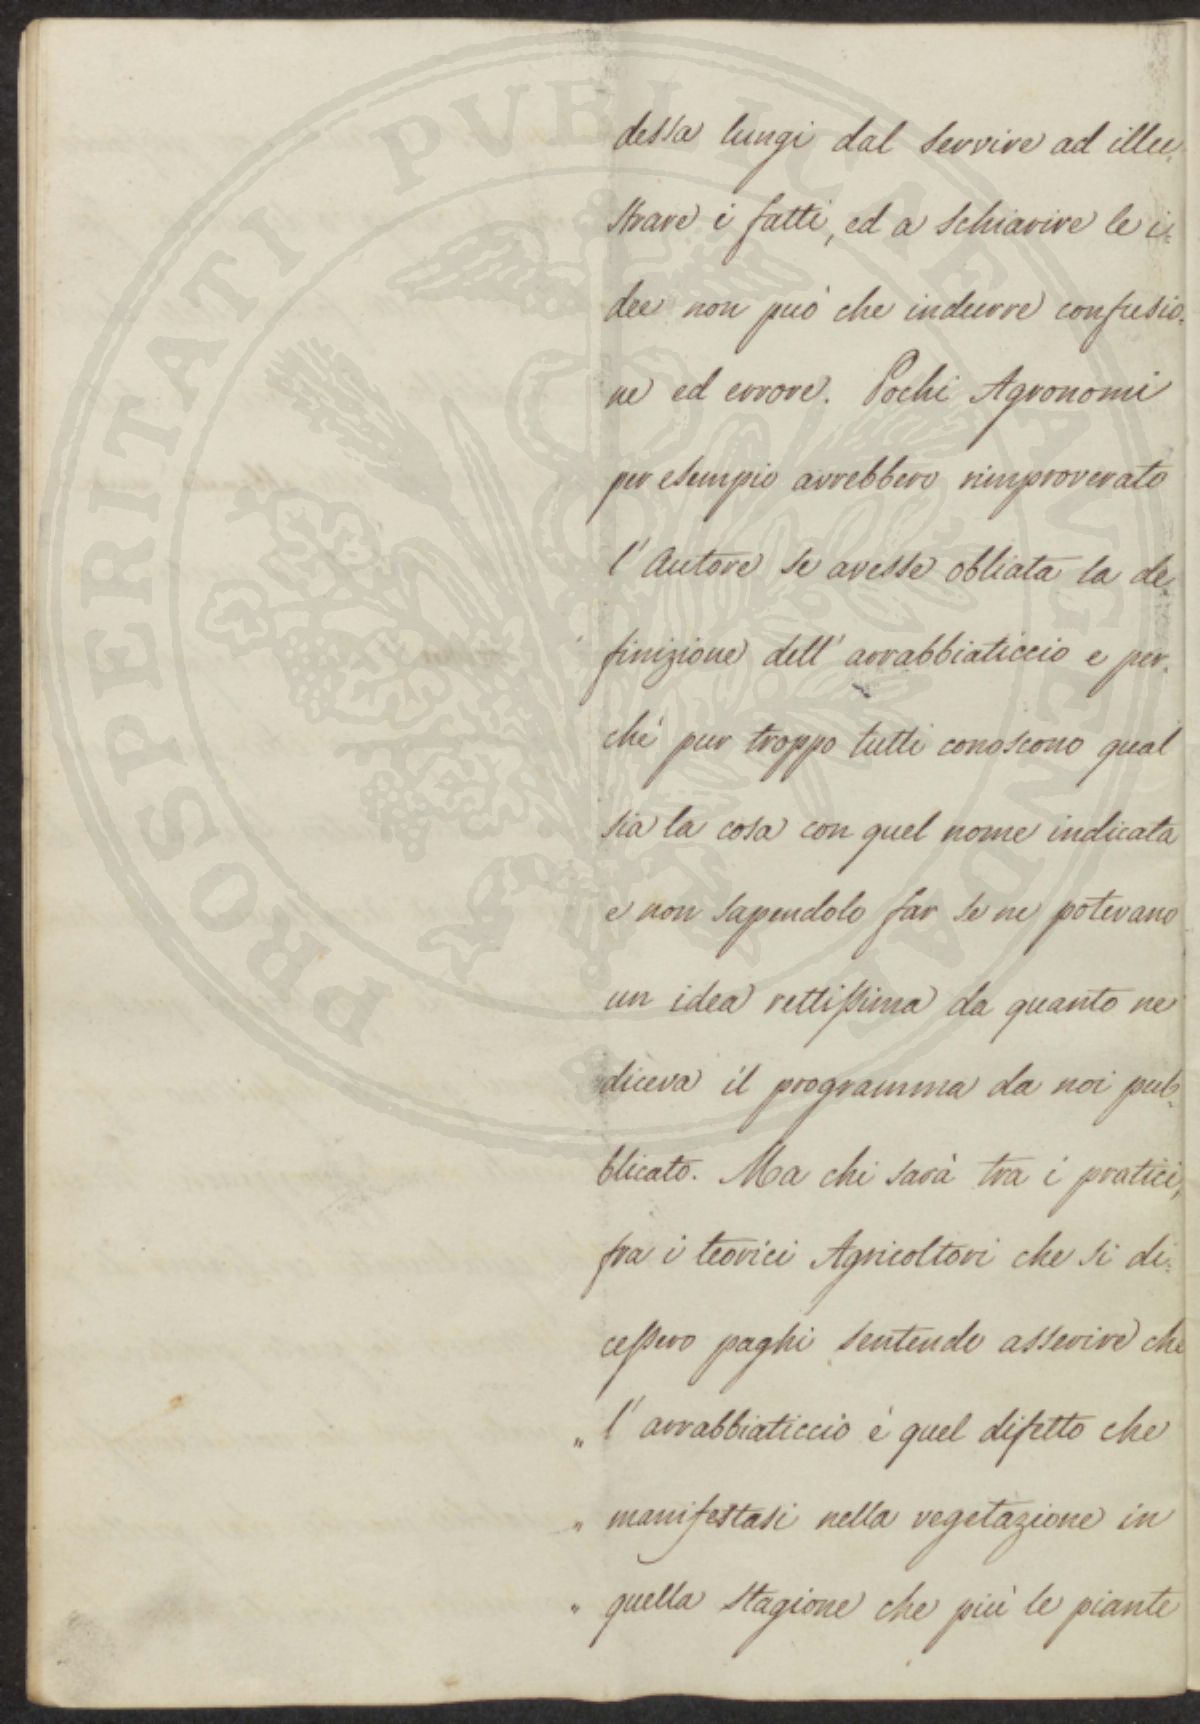 dessa lungi dal servire ad illu-
strare i fatti, ed a schiarire le i-
dee non può che indurre confusio-
ne ed errore. Pochi Agronomi
per esempio avrebbero rimproverato
l'Autore se avesse obliata la de
finizione dell'arrabbiaticcio e per-
chè pur troppo tutti conoscono qual
sia la cosa con quel nome indicata
e non sapendolo far se ne potevano
un idea rettissima da quanto ne
diceva il programma da noi pub-
blicato. Ma chi sarà tra i pratici,
fra i teorici Agricoltori che si di-
cessero paghi sentendo asserire che
" l'arrabbiaticcio è quel difetto che
" manifestasi nella vegetazione in
" quella stagione che più le piante
PROSPERITATI PUBLICAE AUGENDAE